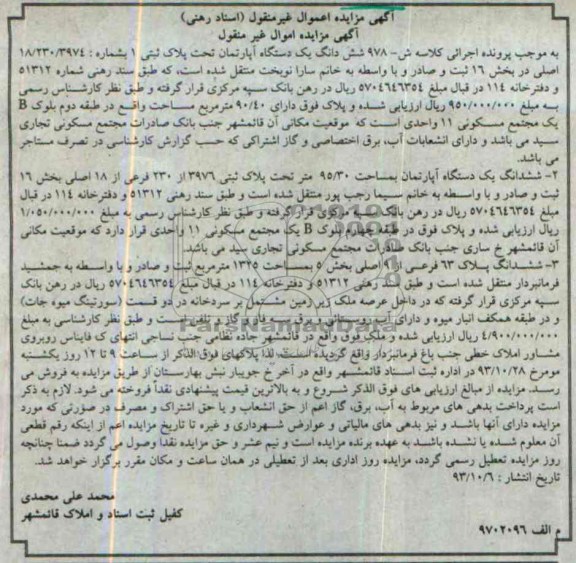 آگهی مزایده اعموال غیرمنقول (اسناد رهنی)
آگهی مزایده اموال غیر منقول
به موجب پرونده اجرائی کلاسه ش- ۹۷۸ شش دانگ یک دستگاه آپارتمان تحت پلاک ثبتی ۱ بشماره : ۱۸/۲۳۰/۳۹۷۴
اصلی در بخش ۱۶ ثبت و صادر و با واسطه به خانم سارا نوبخت منتقل شده است، که طبق سند رهنی شماره ۵۱۳۱۲
و دفترخانه ۱۱۴ در قبال مبلغ ۵۷۰۴۶۴۶۳۵۴ ریال در رهن بانک سپه مرکزی قرار گرفته و طبق نظر کارشناس رسمی
به مبلغ ۹۵۰/۰۰۰/۰۰۰ ریال ارزیابی شده و پلاک فوق دارای ۹۰/۴۰ مترمربع مساحت واقع در طبقه دوم بلوک B
یک مجتمع مسکونی ۱۱ واحدی است که موقعیت مکانی آن قائمشهر جنب بانک صادرات مجتمع مسکونی تجاری
سید می باشد و دارای انشعابات آب، برق اختصاصی و گاز اشتراکی که حسب گزارش کارشناسی در تصرف مستاجر
می باشد.
۲- ششدانگ یک دستگاه آپارتمان بمساحت ۹۵/۳۰ متر تحت پلاک ثبتی ۳۹۷۶ از ۲۳۰ فرعی از ۱۸ اصلی بخش ۱۶
ثبت و صادر و با واسطه به خانم سیما رجب پور منتقل شده است و طبق سند رهنی ۵۱۳۱۲ و دفترخانه ۱۱۴ در قبال
مبلغ ۵۷۰۴۶۴۶۳۵۴ ریال در رهن بانک سپه مرکزی قرار گرفته و طبق نظر کارشناس رسمی به مبلغ ۱/۰۵۰/۰۰۰/۰۰۰
ریال ارزیابی شده و پلاک فوق در طبقه چهارم بلوک B یک مجتمع مسکونی ۱۱ واحدی قرار دارد که موقعیت مکانی
آن قائمشهر خ ساری جنب بانک صادرات مجتمع مسکونی تجاری سید می باشد.
۳- ششدانگ پلاک ۶۳ فرعی از ۹۱ اصلی بخش ۵ بمساحت ۱۳۲۵ مترمربع ثبت و صادر و با واسطه به جمشید
فرمانبردار منتقل شده است و طبق سند رهنی ۵۱۳۱۲ و دفترخانه ۱۱۴ در قبال مبلغ ۵۷۰۴۶۴۶۳۵۴ ریال در رهن بانک
سپه مرکزی قرار گرفته که در داخل عرصه ملک زیرزمین مشتمل بر سردخانه در دو قسمت (سورتینگ میوه جات)
و در طبقه همکف انبار میوه و دارای آب روستائی و برق سه فاز و گاز و تلفن است و طبق نظر کارشناسی به مبلغ
۴/۹۰۰/۰۰۰/۰۰۰ ریال ارزیابی شده و ملک فوق واقع در قائمشهر جاده نظامی جنب نساجی انتهای ک قایناس روبروی
مشاور املاک خطی جنب باغ فرمانبردار واقع گردیده است، لذا پلاکهای فوق الذکر از ساعت ۹ تا ۱۲ روز یکشنبه
مورخ ۹۳/۱۰/۲۸ در اداره ثبت اسناد قائمشهر واقع در آخر خ جویبار نبش بهارستان از طریق مزایده به فروش می
رسد. مزایده از مبالغ ارزیابی های فوق الذکر شروع و به بالاترین قیمت پیشنهادی نقداً فروخته می شود. لازم به ذکر
است پرداخت بدهی های مربوط به آب، برق، گاز اعم از حق انشعاب و یا حق اشتراک و مصرف در صورتی که مورد
مزایده دارای آنها باشد و نیز بدهی های مالیاتی و عوارض شهرداری و غیره تا تاریخ مزایده اعم از اینکه رقم قطعی
آن معلوم شده یا نشده باشد به عهده برنده مزایده است و نیم عشر و حق مزایده نقدا وصول می گردد ضمنا چنانچه
روز مزایده تعطیل رسمی گردد، مزایده روز اداری بعد از تعطیلی در همان ساعت و مکان مقرر برگزار خواهد شد.
تاریخ انتشار : ۹۳/۱۰/۶
محمد علی محمدی
کفیل ثبت اسناد و املاک قائمشهر
م الف ۹۷۰۲۰۹۶